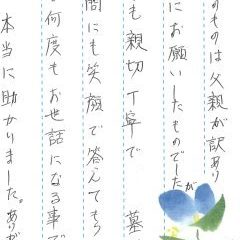 のものは父親が訳あり
にお願いしたものでしたが
も親切丁寧で 墓
問にも笑顔で答えてもら
何度もお世話になる事で
本当に助かりました。ありが